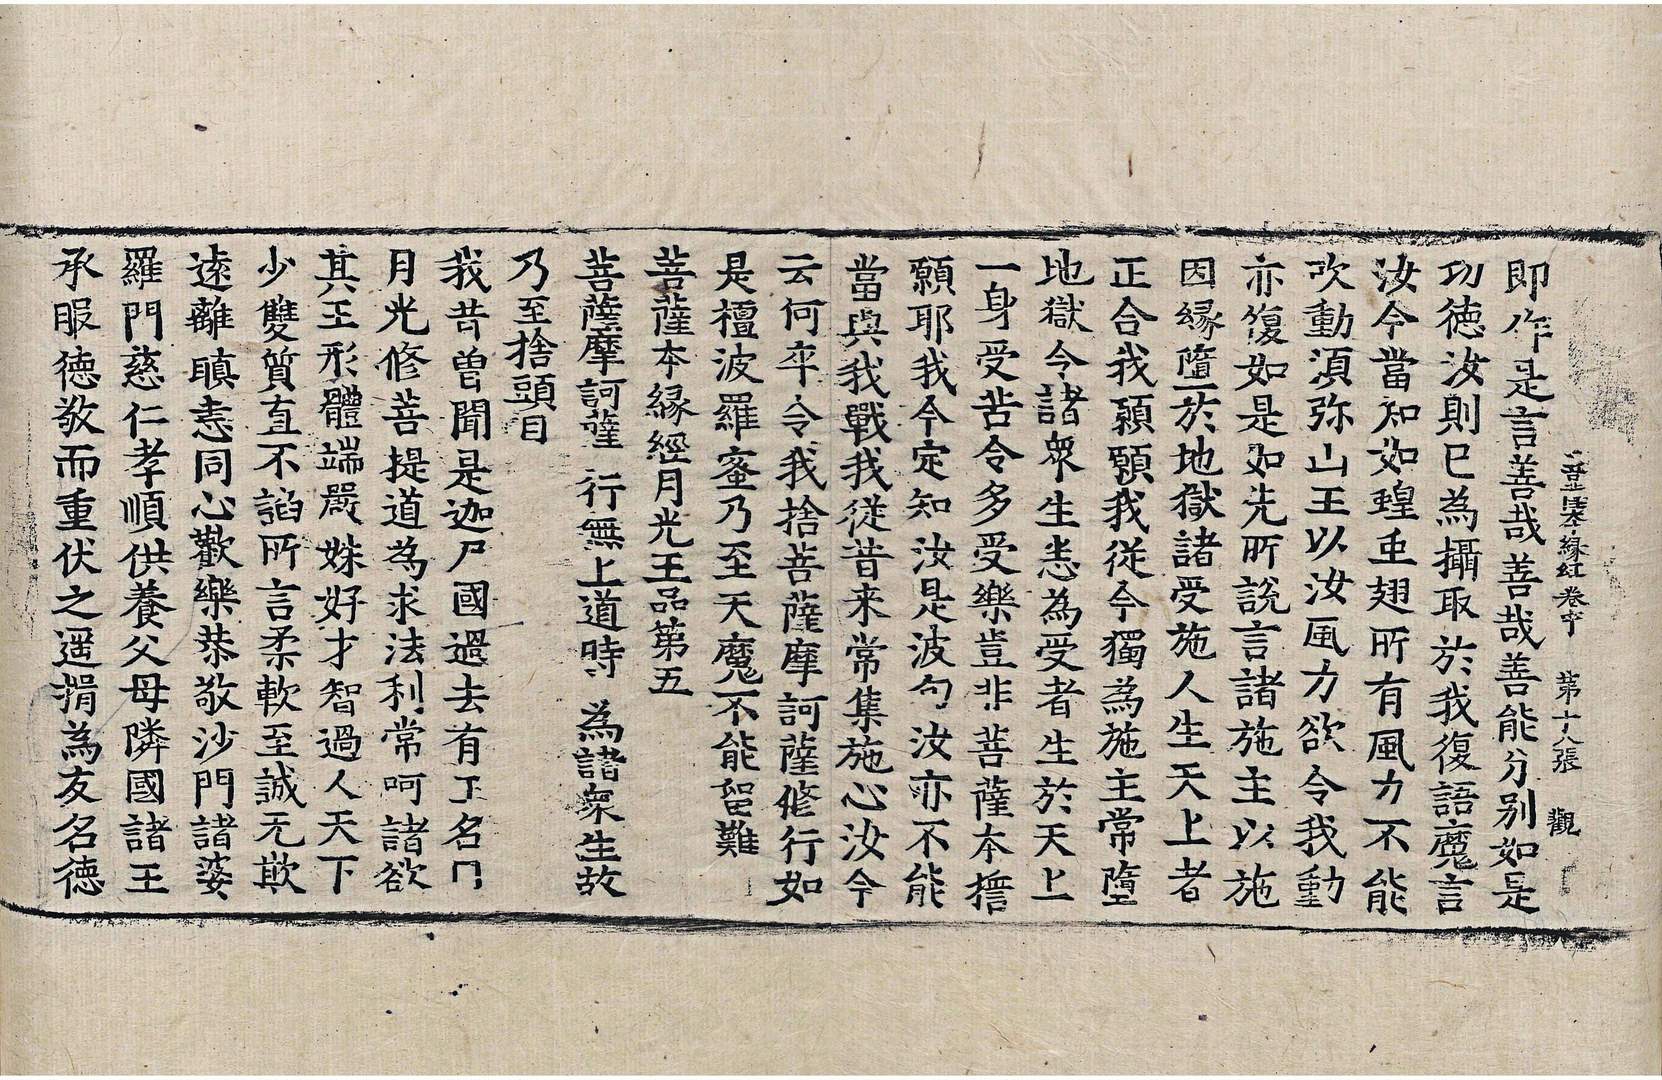 菩薩本緣經卷中　第十八張　觀
即作是言善哉善哉善能分别如是
功德汝則已為攝取於我復語魔言
汝今當知如蝗虫翅所有風力不能
吹動湏弥山王以汝風力欲令我動
亦復如是如先所說言諸施主以施
因縁墮於地獄諸受施人生天上者
正合我願願我從今獨為施主常墮
地獄令諸衆生悉為受者生於天上
一身受苦令多受樂豈非菩薩本擔
願耶我今定知汝是波旬汝亦不能
當與我戰我從昔来常集施心汝今
云何卒令我捨菩薩摩訶薩修行如
是檀波羅蜜乃至天魔不能留難
菩薩本縁經月光王品第五
菩薩摩訶薩 行無上道時 為諸衆生故
乃至捨頭目
我昔曽聞是迦尸國過去有王名曰
月光修菩提道為求法利常呵諸欲
其王形體端嚴姝好才智過人天下
少雙質直不諂所言柔軟至誠无欺
遠離瞋恚同心歡樂恭敬沙門諸婆
羅門慈仁孝順供養父母隣國諸王
承服德敬而重伏之遥捐為友名德